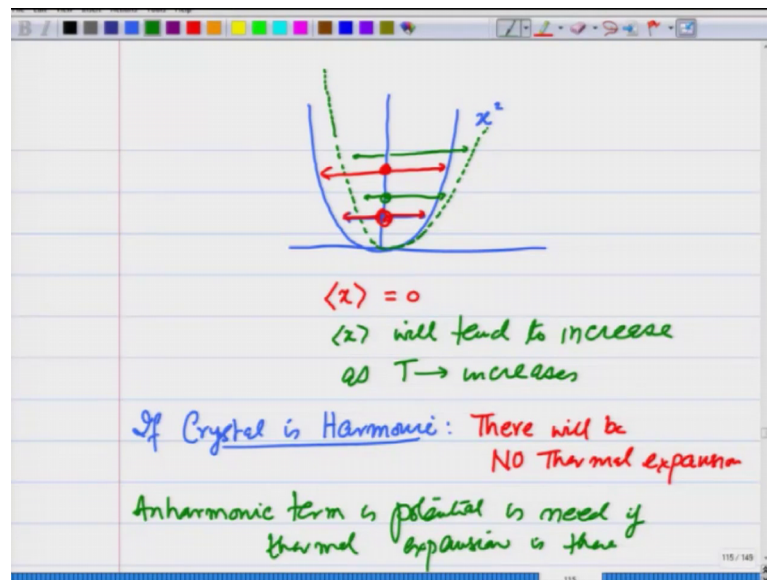 x²
⟨x⟩ = 0
⟨x⟩ will tend to increase
as T → increases
If Crystal is Harmonic: There will be
NO Thermal expansion
Anharmonic term is potential is need if
thermal expansion is there
115 / 149
115